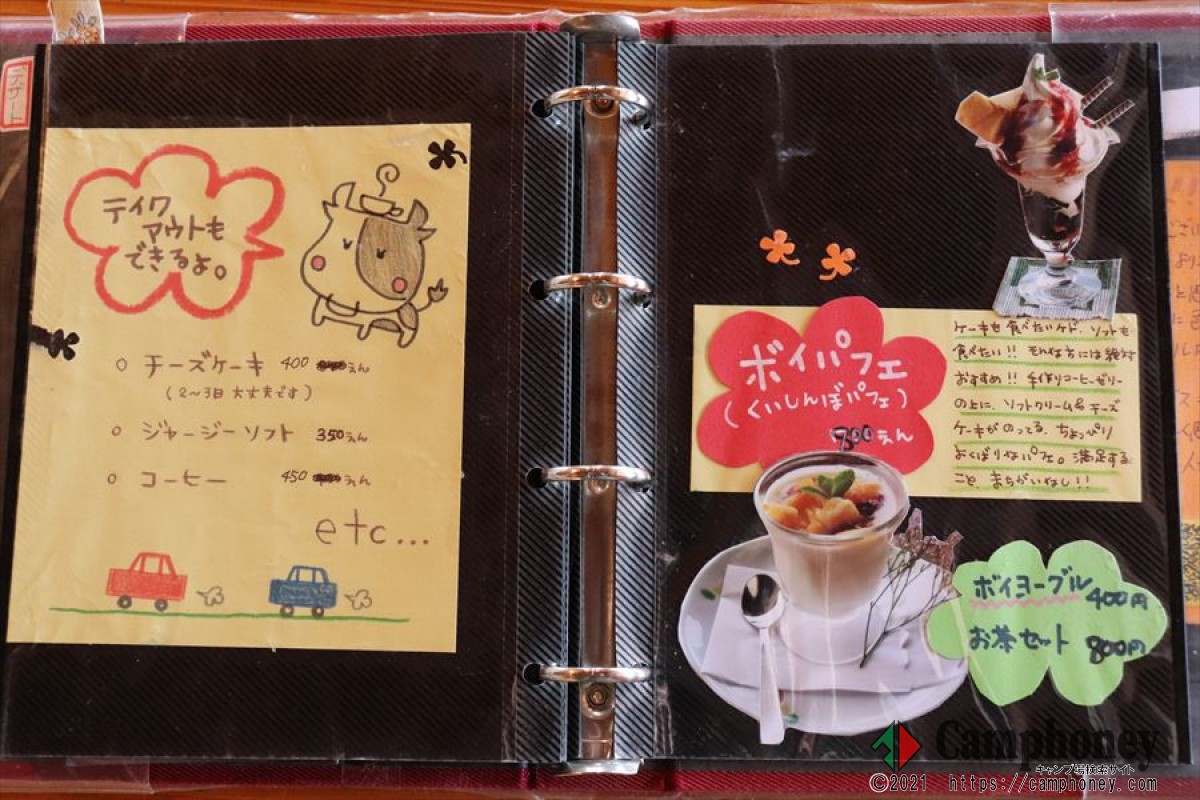 デザート
テイクアウトも
できるよ。
チーズケーキ 400 えん
(2〜3日 大丈夫です)
ジャージーソフト 350えん
コーヒー 450 えん
etc...
ボイパフェ
(くいしんぼパフェ)
700えん
ケーキも食べたいケド、ソフトも
食べたい!! そんな方には絶対
おすすめ!! 手作りコーヒーゼリー
の上に、ソフトクリーム&チーズ
ケーキがのってる、ちょっぴり
よくばりなパフェ。満足する
こと、まちがいなし!!
ボイヨーブル 400円
お茶セット 800円
Camphoney
キャンプ場検索サイト
©2021 https://camphoney.com